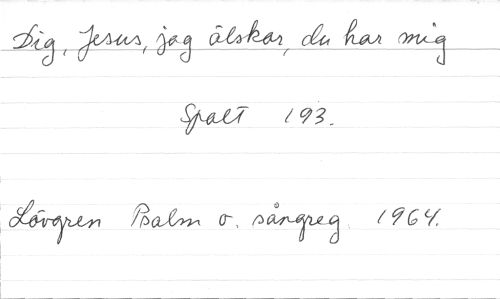 Dig, Jesus, jag älskar, du har mig
Spalt 193.
Lövgren Psalm o. sångreg. 1964.